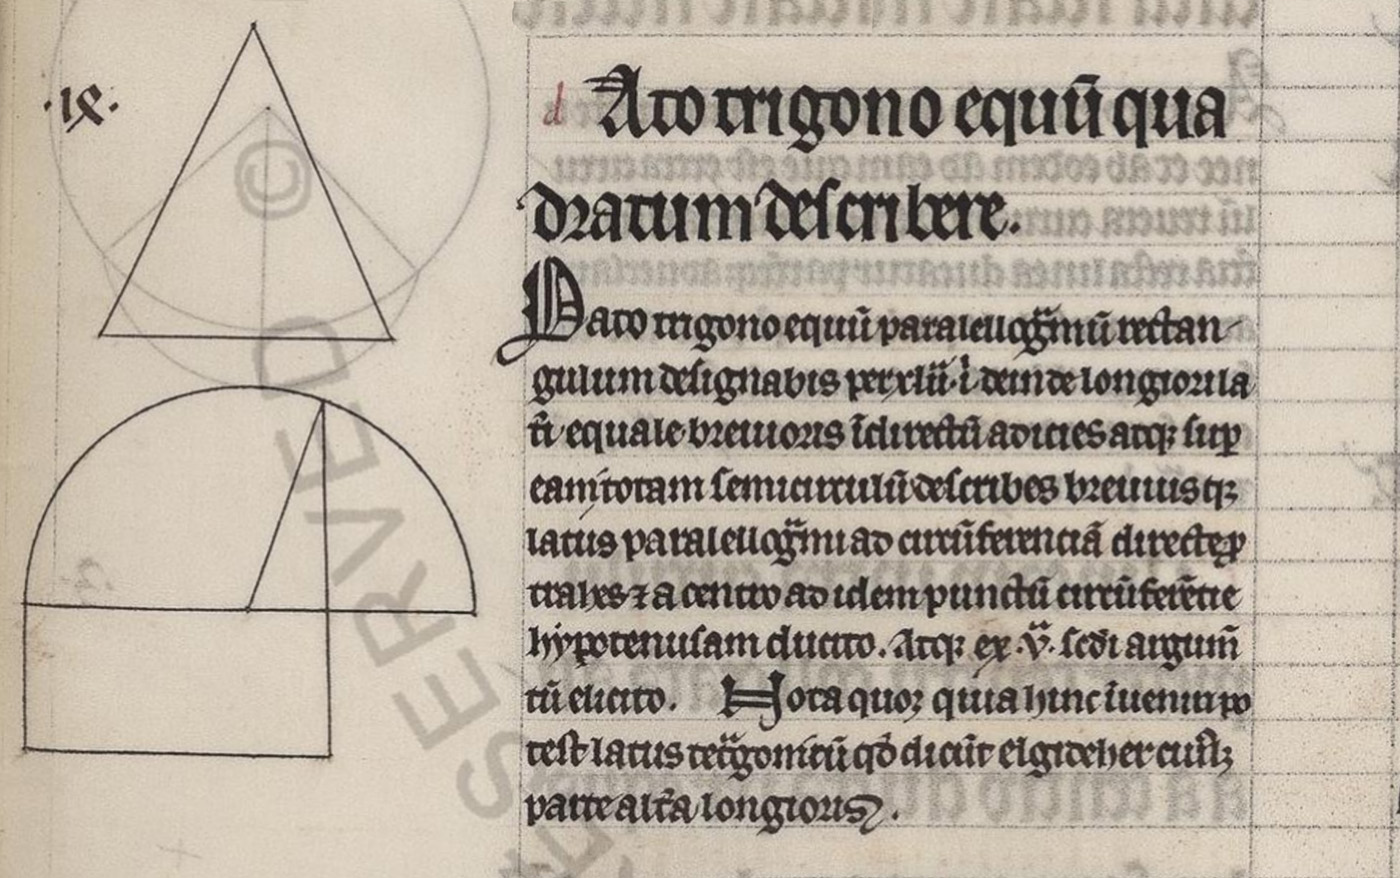 ·ix·
d Ato trigono equũ qua
dratum describere.
Dato trigono equũ paralellogͣmũ rectan
gulum designabis per xlii·i· deinde longiori la
t̃i equale breuioris ĩdirectũ adicies atqꝫ suꝑ
eam totam semicirculũ describes breuiusqꝫ
latus paralellogͣmi ad circũferenciã directe ꝓ
trahes ⁊ a centro ad idem punctũ circũferẽtie
hypotenusam ducito. Atqꝫ ex ·v̾· scdi argum̃
tũ elicito. Nota quoꝫ quia hinc ĩueniri po
test latus tetͣgonicũ qd̃ dicũt
parte alt̾a longioris.
©